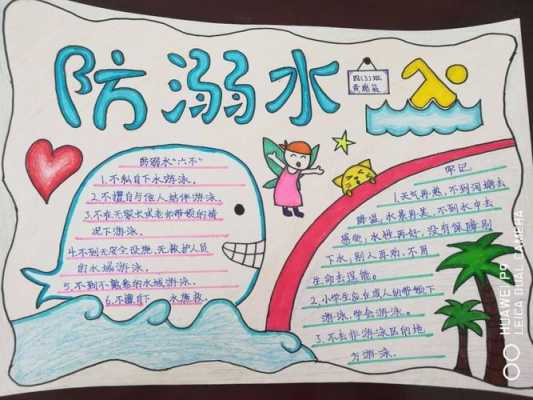 防溺水
四(3)班
防溺水“六不”
1.不私自下水游泳.
2.不擅自与他人结伴游泳.
3.不在无家长或老师带领的情
况下游泳.
4.不到无安全设施,无救护人员
的水域游泳.
5.不到不熟悉的水域游泳.
6.不擅自下水施救.
牢记
1.天气再热,不到河塘去
降温,水景再美,不到水中去
感觉;水性再好,没有保障别
下水;别人再劝,不用
生命去逞能.
2.小学生应在成人的带领下
游泳,学会游泳.
3.不去非游泳区的地
方游泳.
HUAWEI P9
LEICA DUAL CAMERA